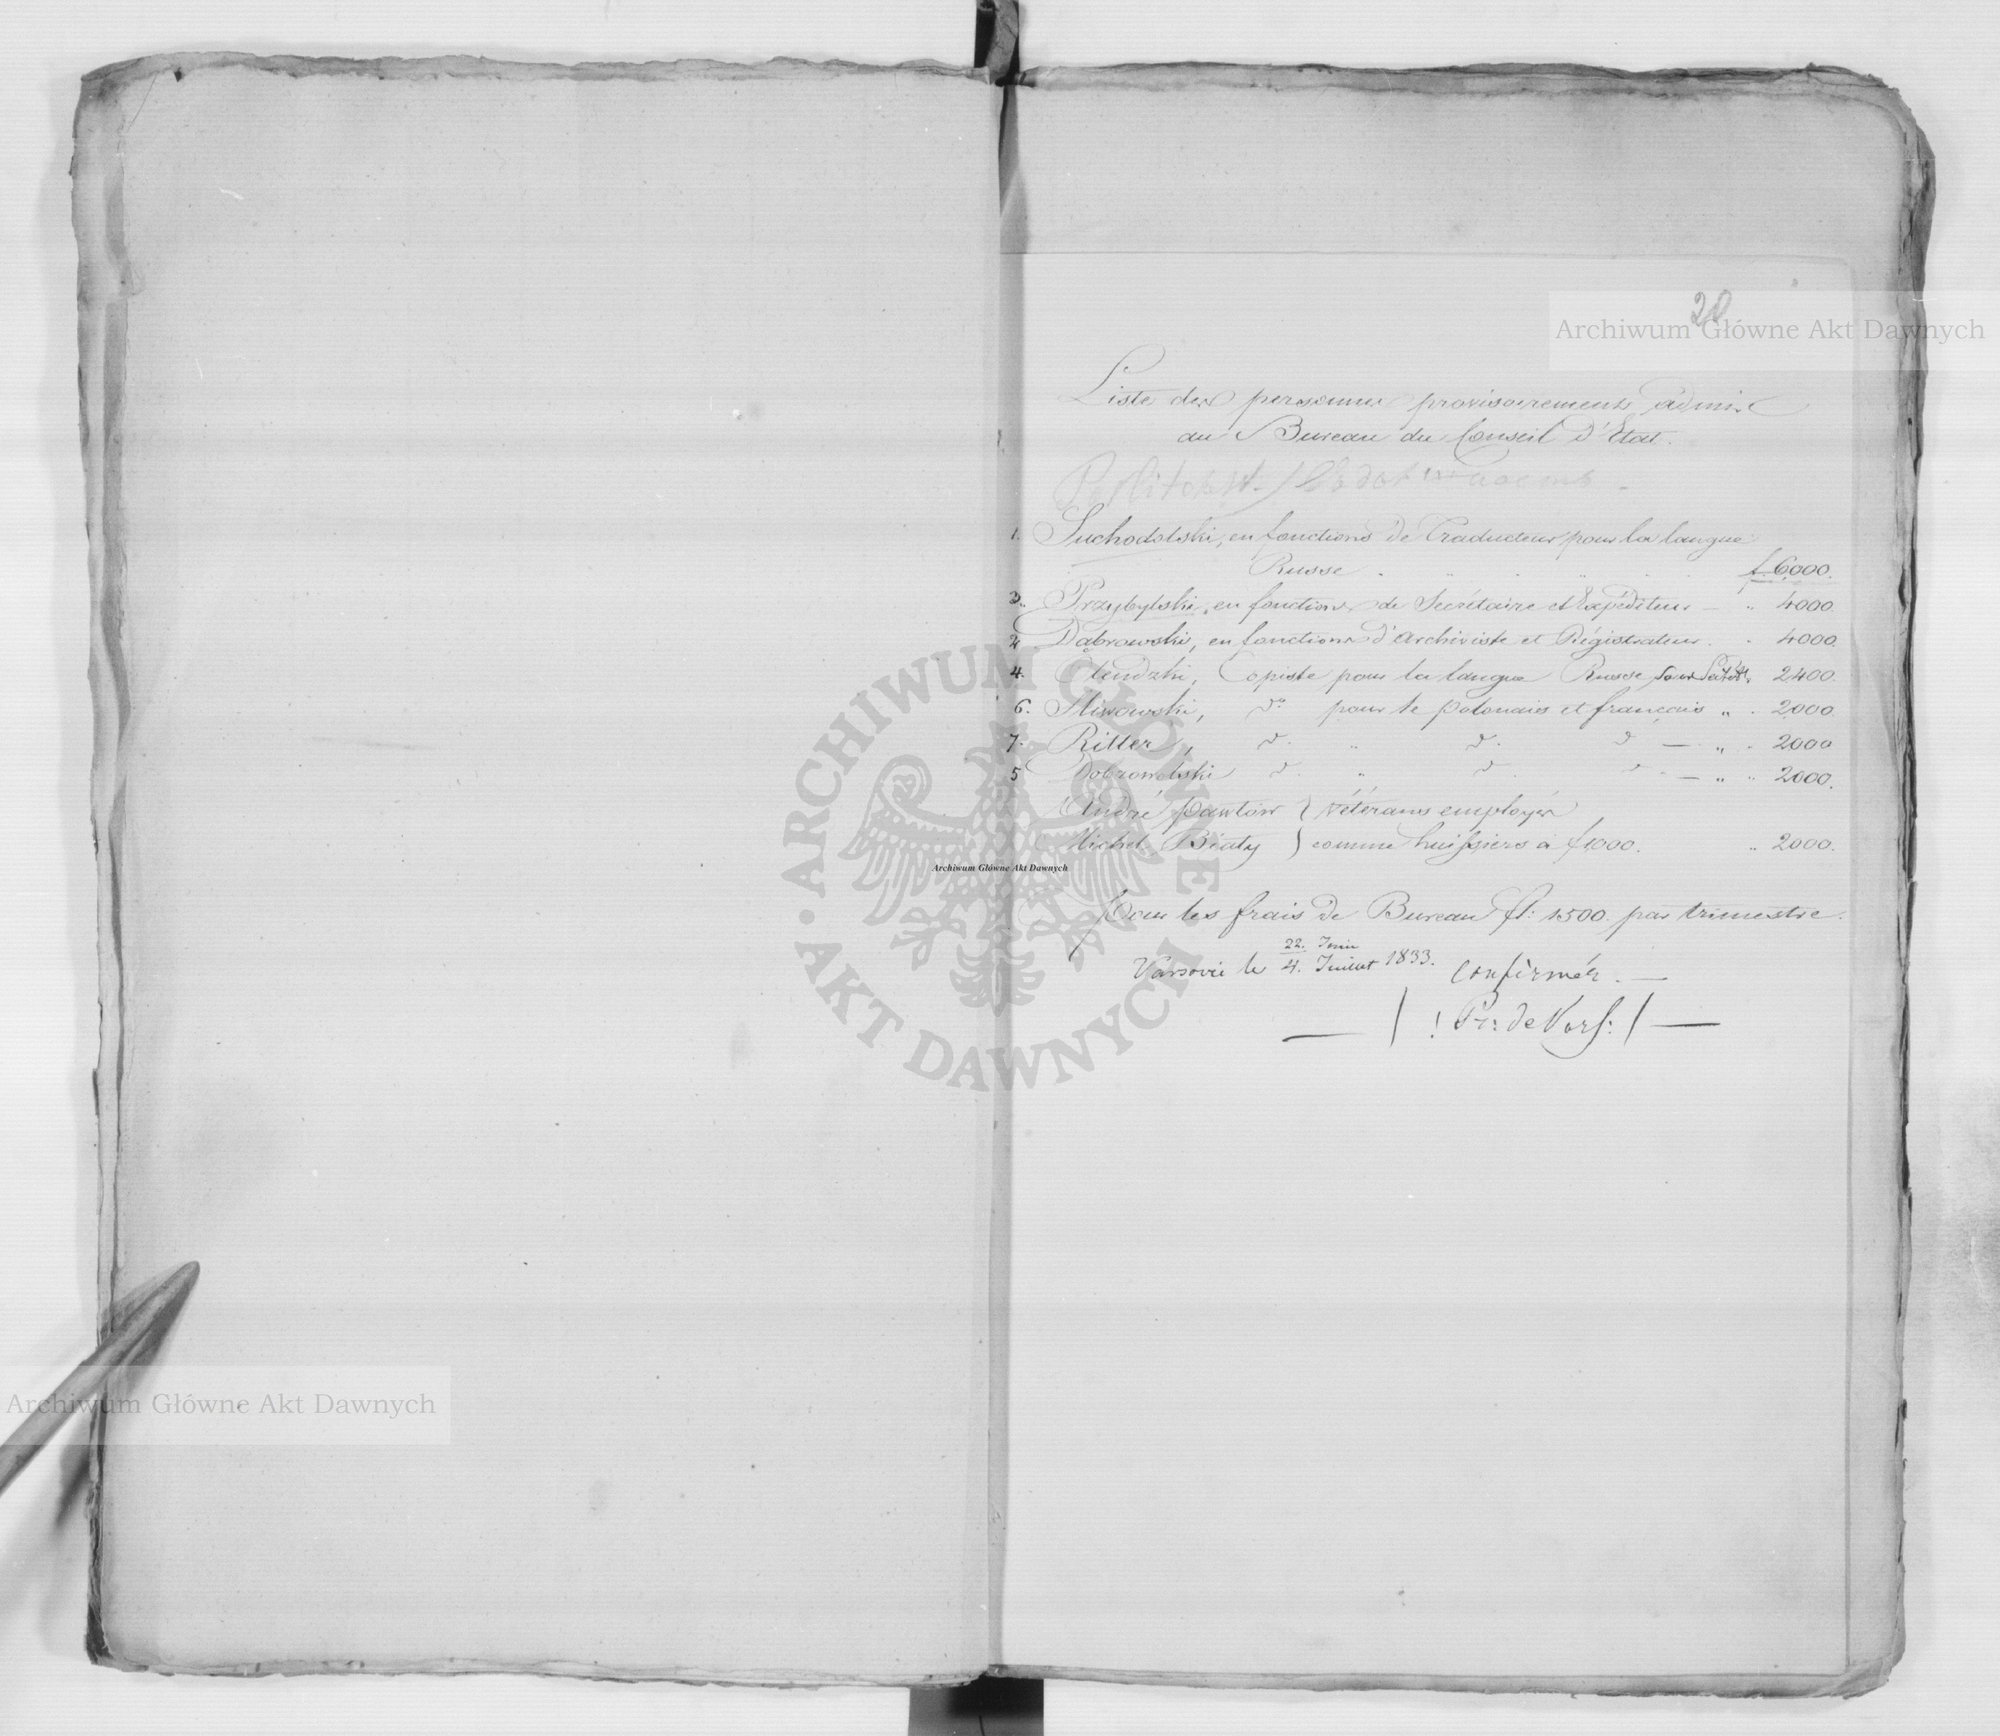 20
Liste des personnes provisoirement admis
au Bureau du Conseil d'Etat.
1. Suchodolski, en fonctions de Traducteur pour la langue
Russe " " " " f. 6000.
3. Przybylski, en fonctions de Secrétaire et Expéditeur — " 4000.
2 Dąbrowski, en fonctions d'Archiviste et Régistrateur . " 4000.
4. Olendzki, Copiste pour la langue Russe 2400.
6. Sliwowski, do pour le polonais et français " . 2000.
7. Ritter, d. " d. d — " . 2000
5 Dobrowolski d. " d d — " " 2000.
André Pawłow } Vétérans employés
Michel Biały } comme huissiers à f 1000. " 2000.
Pour les frais de Bureau fl: 1500. par trimestre.
Varsovie le 22. Juin / 4. Juillet 1833. Confirmés. —
— / ! Pr: de Vars: / —
Archiwum Główne Akt Dawnych
Archiwum Główne Akt Dawnych
Archiwum Główne Akt Dawnych
ARCHIWUM GŁÓWNE • AKT DAWNYCH •